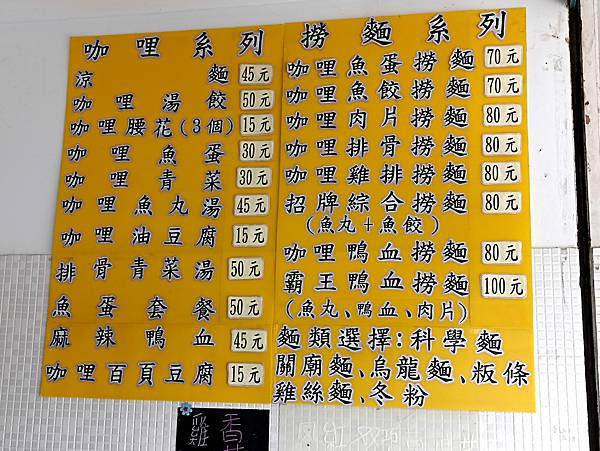 咖哩系列
涼麵 45元
咖哩湯餃 50元
咖哩腰花(3個) 15元
咖哩魚蛋 30元
咖哩青菜 30元
咖哩魚丸湯 45元
咖哩油豆腐 15元
排骨青菜湯 50元
魚蛋套餐 50元
麻辣鴨血 45元
咖哩百頁豆腐 15元
撈麵系列
咖哩魚蛋撈麵 70元
咖哩魚餃撈麵 70元
咖哩肉片撈麵 80元
咖哩排骨撈麵 80元
咖哩雞排撈麵 80元
招牌綜合撈麵 80元
(魚丸+魚餃)
咖哩鴨血撈麵 80元
霸王鴨血撈麵 100元
(魚丸、鴨血、肉片)
麵類選擇:科學麵
關廟麵、烏龍麵、粄條
雞絲麵、冬粉
雞 香